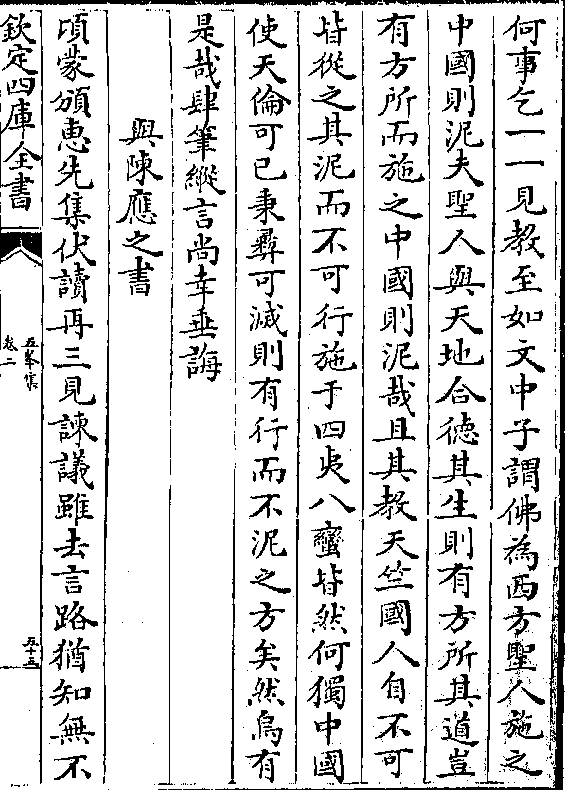 何事乞一一見教至如文中子謂佛為西方聖人施之
中國則泥夫聖人與天地合德其生則有方所其道豈
有方所而施之中國則泥哉且其教天竺國人自不可
皆從之其泥而不可行施于四夷八蠻皆然何獨中國
使天倫可已秉彞可滅則有行而不泥之方矣然烏有
是哉肆筆縱言尚幸垂誨
與陳應之書
頃蒙頒惠先集伏讀再三見諫議雖去言路猶知無不
欽定四庫全書
五峯集
卷二
五十五